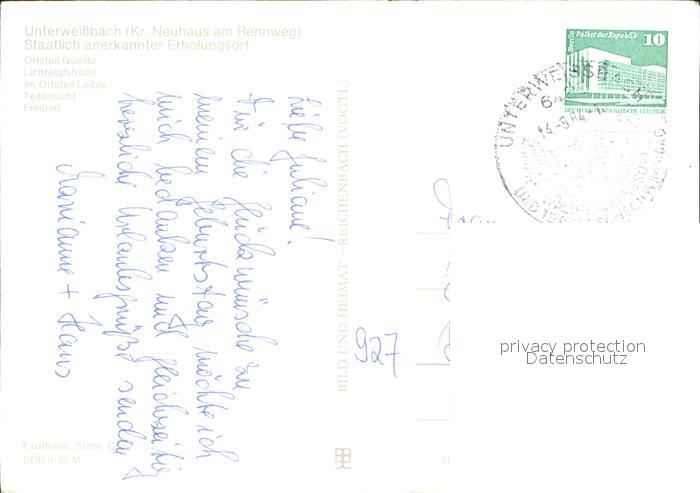 Unterweißbach (Kr. Neuhaus am Rennweg)
Staatlich anerkannter Erholungsort
Ortsteil Quelitz
Lichtetalstraße
Im Ortsteil Leibis
Teilansicht
Freibad
Liebe Juliane!
Für die Glückwünsche zu
meinem Geburtstag möchte ich
mich bedanken und gleichzeitig
herzliche Urlaubsgrüße senden
Marianne + Hans
BILD UND HEIMAT · REICHENBACH (VOGTL)
927
Berlin Palast der Republik 10
DEUTSCHE DEMOKRATISCHE REPUBLIK
UNTERWEISSBACH
privacy protection
Datenschutz
Farbfotos: Stöhr,
DDR 0,20 M